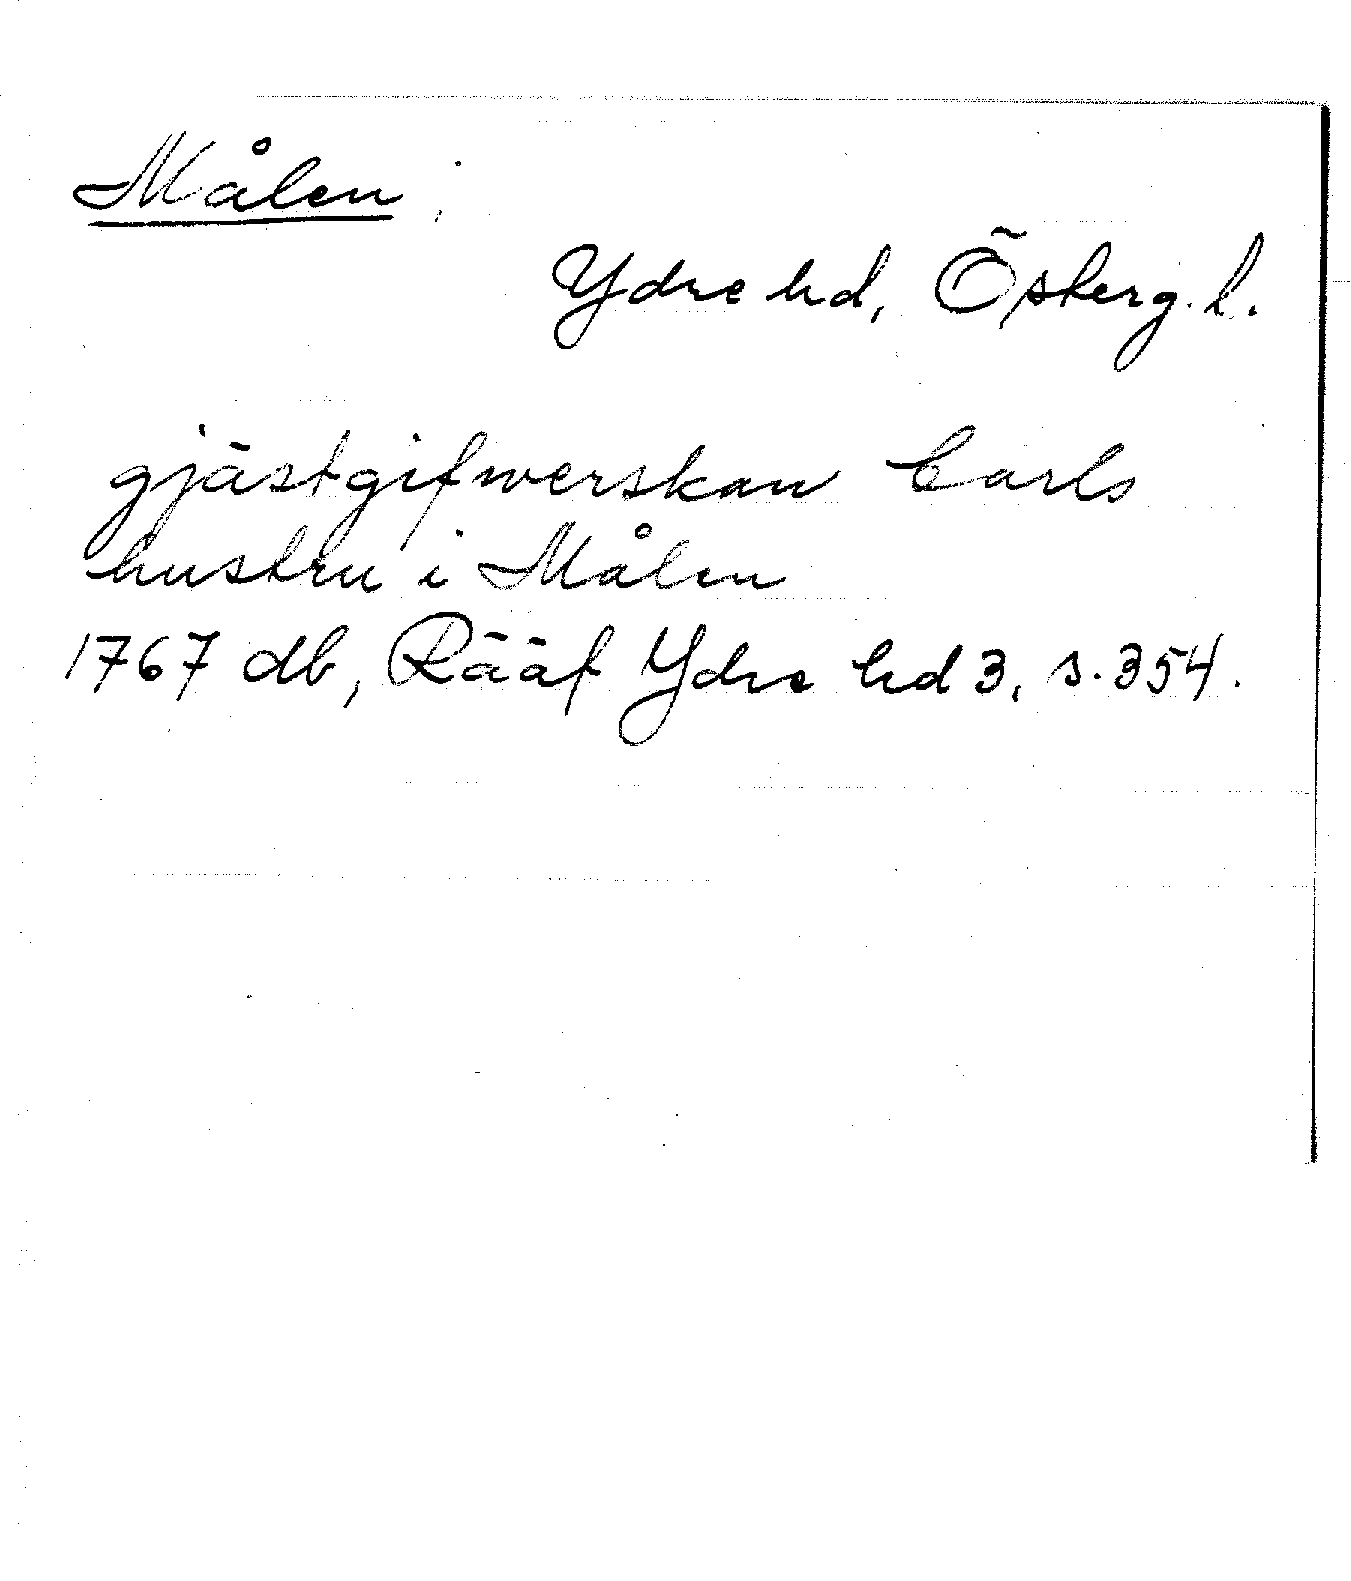 Målen
Ydre hd, Österg. l.
gjästgifwerskan Carls
hustru i Målen
1767 db, Rääf Ydre hd 3, s. 354.